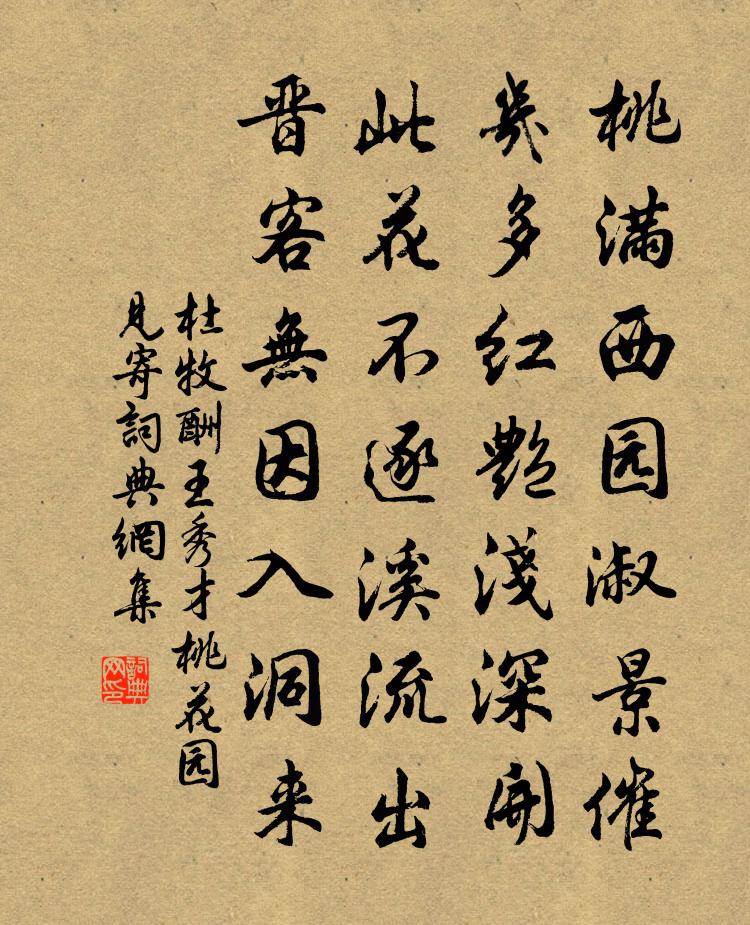 桃满西园淑景催
几多红艳浅深开
此花不逐溪流出
晋客無因入洞来
杜牧酬王秀才桃花园
見寄詞典網集
詞典网印